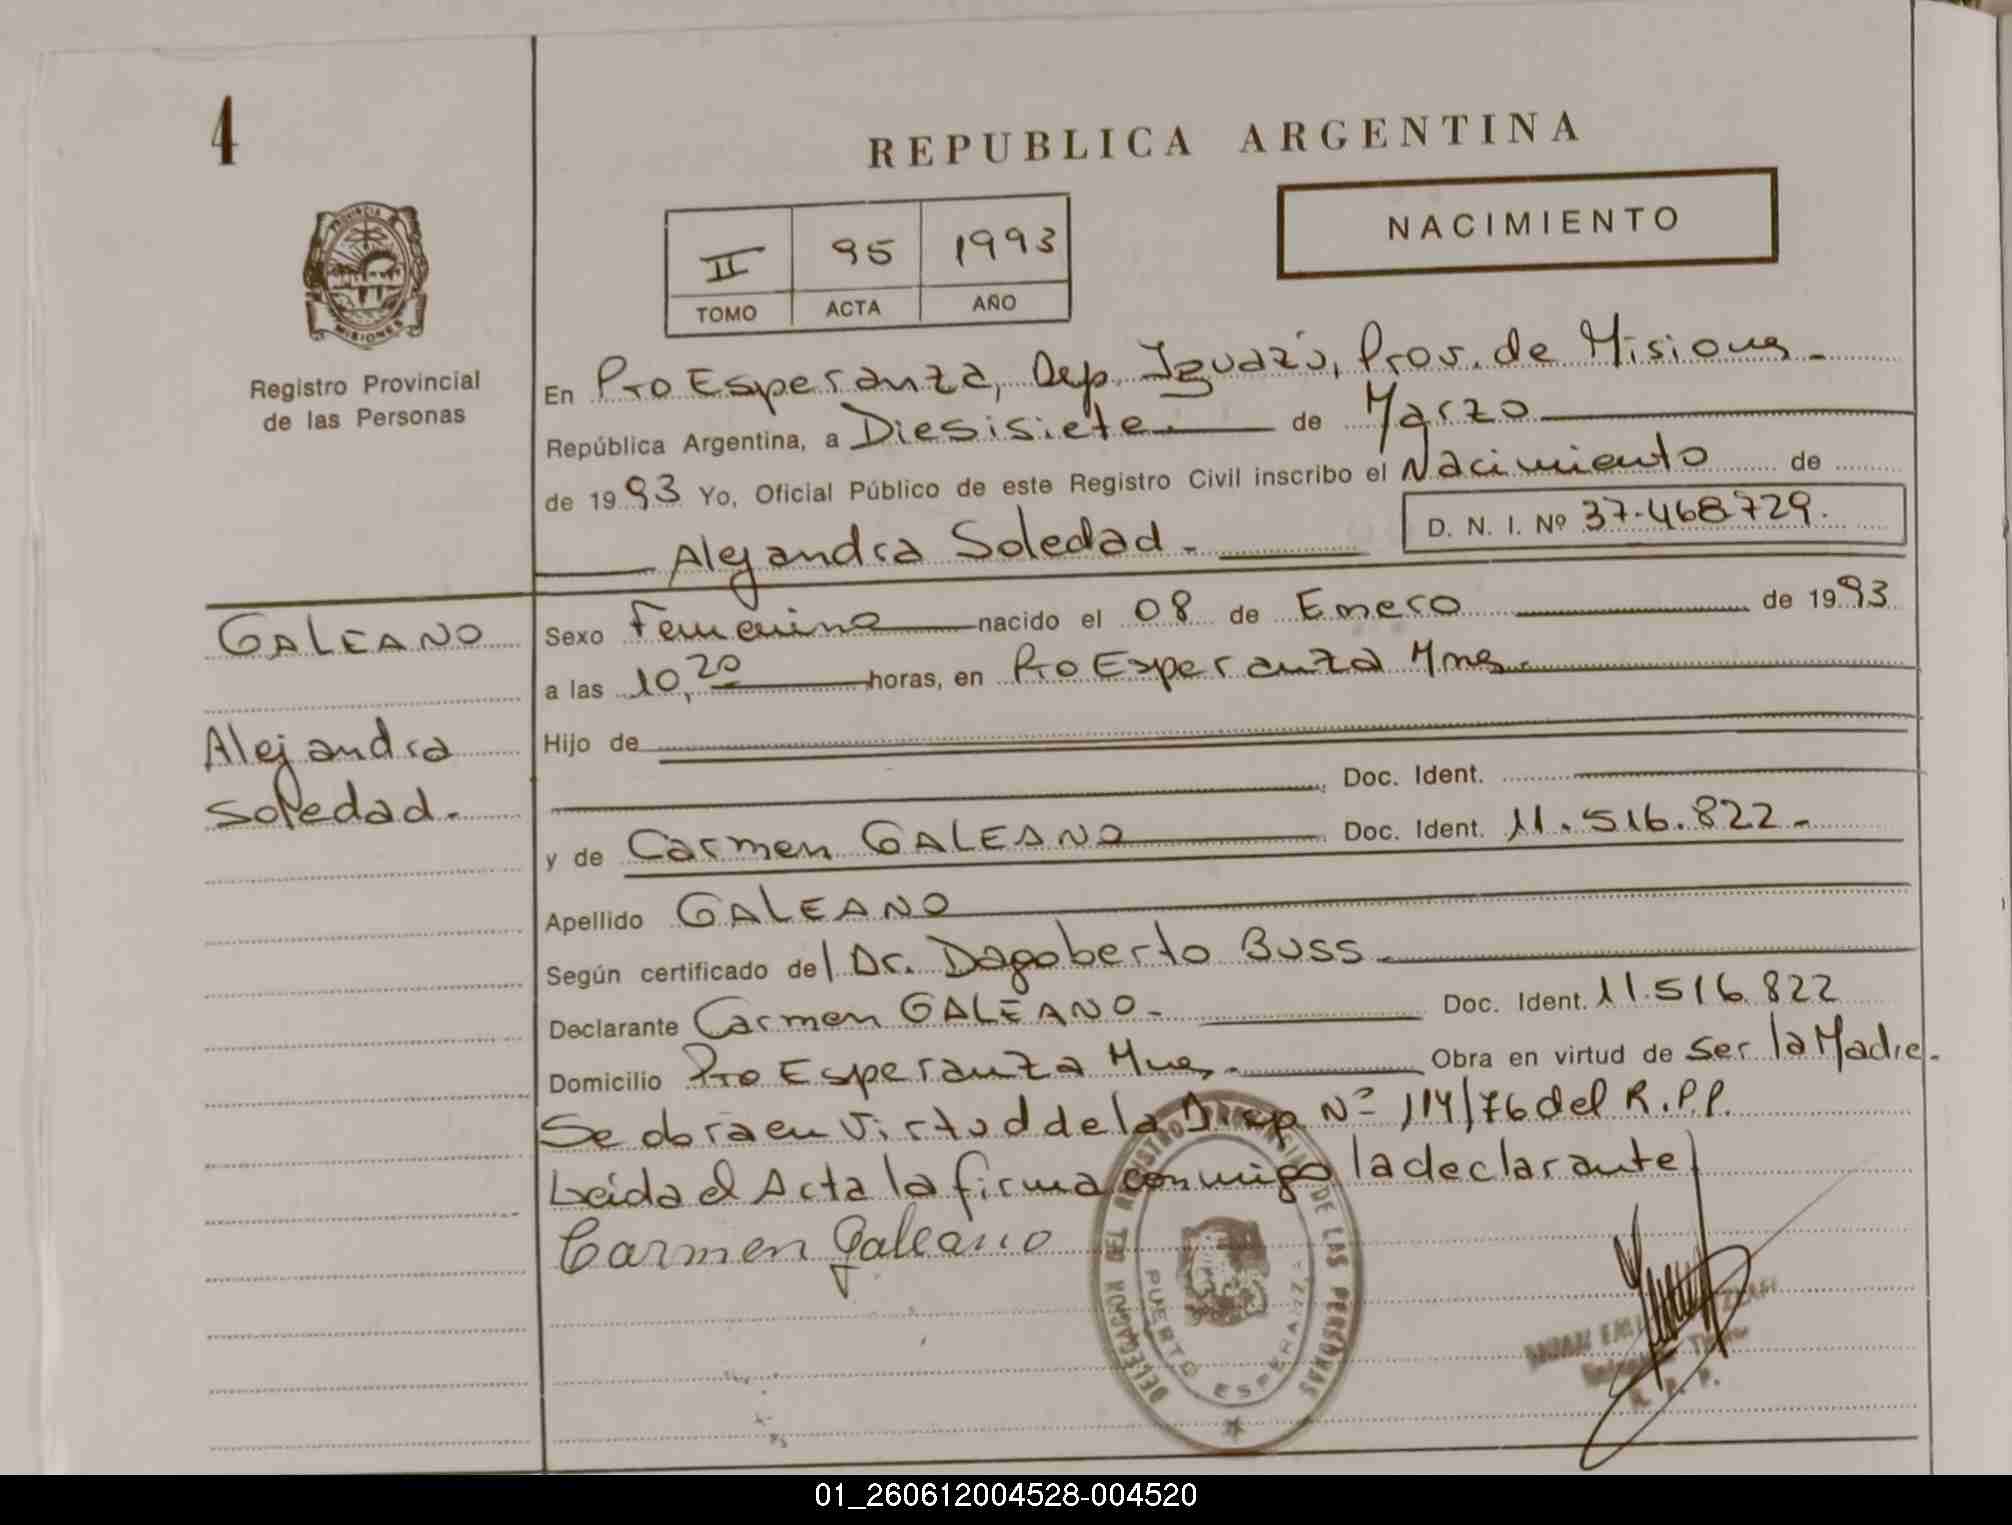 4
REPUBLICA ARGENTINA
NACIMIENTO
II 95 1993
TOMO ACTA AÑO
PROVINCIA DE
MISIONES
Registro Provincial
de las Personas
En Pto Esperanza, Dep. Iguazú, Prov. de Misiones.
República Argentina, a Diesisiete. de Marzo
de 1993 Yo, Oficial Público de este Registro Civil inscribo el Nacimiento de
Alejandra Soledad. D. N. I. Nº 37.468729.
GALEANO
Alejandra
Soledad.
Sexo Femenino nacido el 08 de Enero de 1993
a las 10,20 horas, en Pto Esperanza Mnes.
Hijo de
Doc. Ident.
y de Carmen GALEANO Doc. Ident. 11.516.822.
Apellido GALEANO
Según certificado del Dr. Dagoberto Buss.
Declarante Carmen GALEANO. Doc. Ident. 11.516.822
Domicilio Pto Esperanza Mnes. Obra en virtud de Ser la Madre.
Se obra en virtud de la Disp. Nº 114/76 del R.P.P.
Leida el Acta la firma conmigo la declarante
Carmen Galeano
DELEGACION DEL REGISTRO PROVINCIAL DE LAS PERSONAS
PUERTO ESPERANZA
R. P. P.
01_260612004528-004520